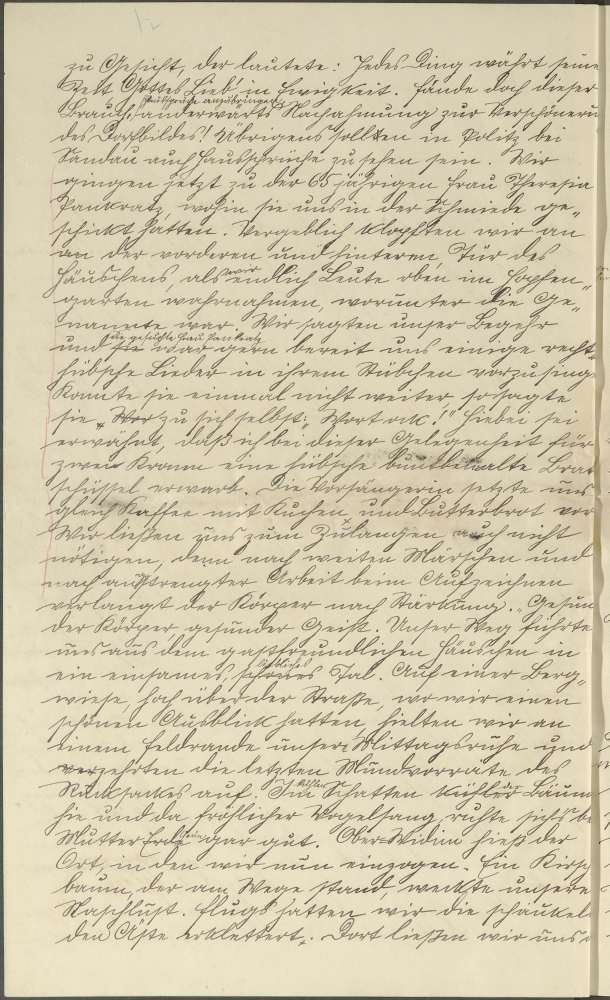 zu Gesicht, der lautete: Jedes Ding währt seine
Zeit Gottes Lieb' in Ewigkeit. Fände doch dieser
Haussprüche anzubringen
Brauch, anderwärts Nachahmung zur Verschöneru
des Dorfbildes! Uibrigens sollten in Politz bei
Sandau auch Haussprüche zu sehen sein. Wir
gingen jetzt zu der 65 jährigen Frau Theresia
Pankratz, wohin sie uns in der Schmiede ge-
schickt hatten. Vergeblich klopften wir an
an der vorderen und hinteren Tür des
Häuschens, als wir endlich Leute oben im Hopfen-
garten wahrnahmen, worunter die Ge-
nannte war. Wir sagten unser Begehr
die gesuchte Frau Pankratz
und sie war gern bereit uns einige recht
hübsche Lieder in ihrem Stübchen vorzusing
Konnte sie einmal nicht weiter, so sagte
sie zu sich selbst: "Wort ock!" Hiebei sei
erwähnt, daß ich bei dieser Gelegenheit für
zwei Kronen eine hübsche buntbemalte Brat
schüssel erwarb. Die Vorsängerin setzte uns
gleich Kaffee mit Kuchen und Butterbrot vor
Wir ließen uns zum Zulangen auch nicht
nötigen, denn nach weiten Märschen und
nach anstrengter Arbeit beim Aufzeichnen
verlangt der Körper nach Stärkung. Gesun
der Körper gesunder Geist. Unser Weg führte
uns aus dem gastfreundlichen Häuschen in
liebliches
ein einsames, schönes Tal. Auf einer Berg-
wiese, hoch über der Straße, wo wir einen
schönen Ausblick hatten, hielten wir an
einem Feldrande unsere Mittagsruhe und
verzehrten die letzten Mundvorräte des
Rucksackes auf. Im kühlen Schatten der Bäum
hie und da fröhlicher Vogelsang, ruhte sich's be
Mutter Erde gar gut. Ober-Widim hieß der
Ort, in den wir nun einzogen. Ein Kirsch
baum, der am Wege stand, weckte unsere
Naschlust. Flugs hatten wir die schaukel
den Äste erklettert. Dort ließen wir uns